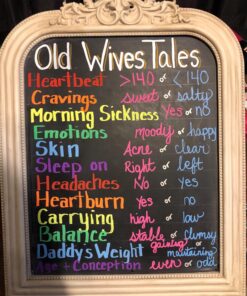 Old Wives Tales
Heartbeat >140 or <140
Cravings sweet or salty
Morning Sickness Yes or no
Emotions moody or happy
Skin Acne or clear
Sleep on Right or left
Headaches No or Yes
Heartburn yes or no
Carrying high or low
Balance stable or Clumsy
Daddy's Weight gaining or maintaining
Age + Conception even or odd